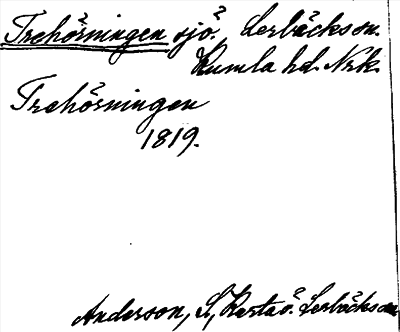 Trehörningen sjö. Lerbäcks sn.
Kumla hd. Nrk.
Trehörningen
1819.
Anderson, S, Karta ö. Lerbäcks sn